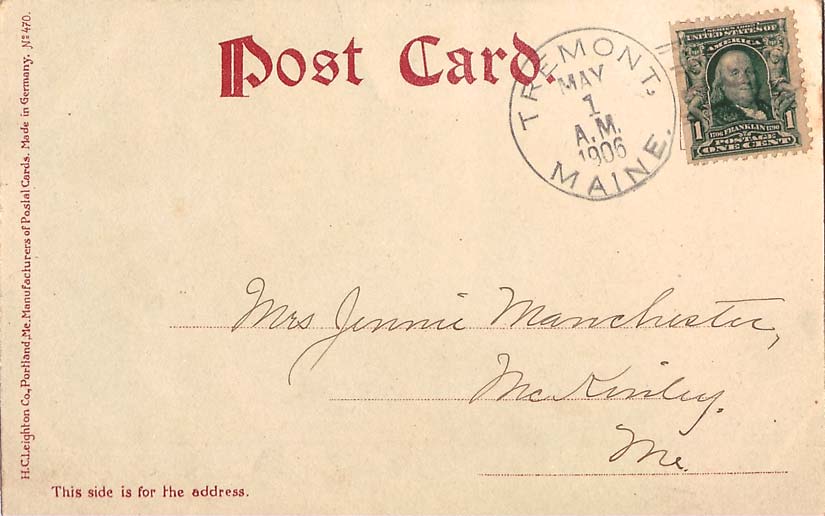 Post Card.
TREMONT,
MAY
1
A.M.
1906
MAINE.
UNITED STATES OF
AMERICA
1706 FRANKLIN 1790
1 POSTAGE 1
ONE CENT
Mrs Jennie Manchester,
McKinley.
Me.
This side is for the address.
H.C. Leighton Co., Portland, Me. Manufacturers of Postal Cards. Made in Germany. No 470.